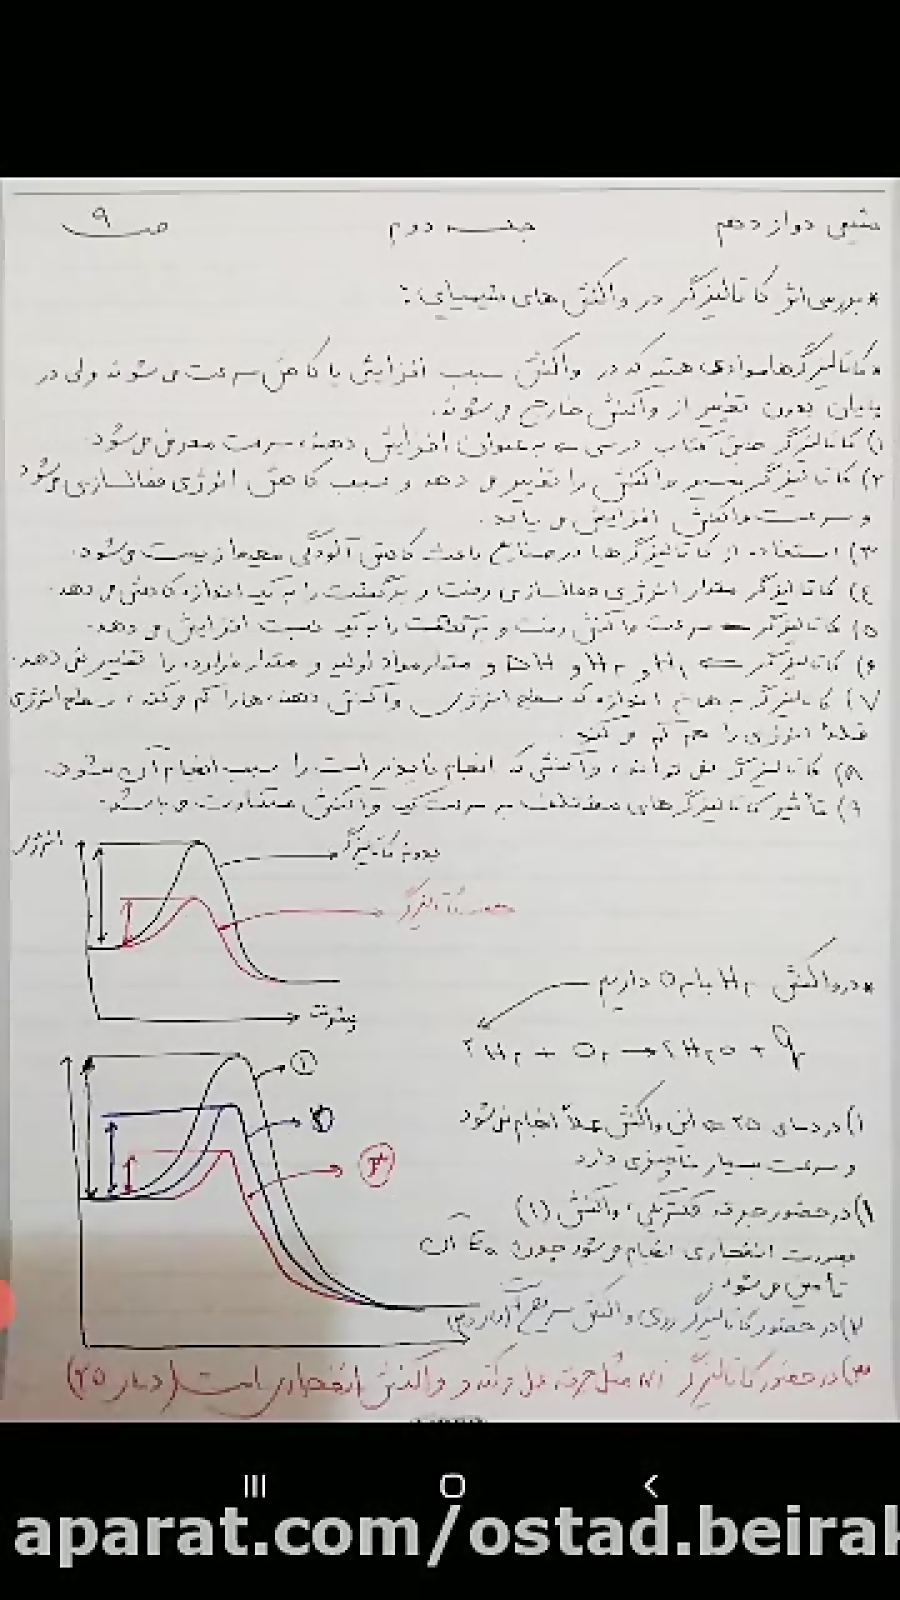 شیمی دوازدهم جلسه دوم ص ۹
* بررسی اثر کاتالیزگر در واکنش های شیمیایی:
* کاتالیزگرها موادی هستند که در واکنش سبب افزایش یا کاهش سرعت می شوند ولی در
پایان بدون تغییر از واکنش خارج می شوند.
۱) کاتالیزگر طبق کتاب درسی به عنوان افزایش دهنده سرعت معرفی می شود.
۲) کاتالیزگر مسیر واکنش را تغییر می دهد و سبب کاهش انرژی فعالسازی می شود
و سرعت واکنش افزایش می یابد.
۳) استفاده از کاتالیزگرها در صنایع باعث کاهش آلودگی محیط زیست می شود.
۴) کاتالیزگر مقدار انرژی فعالسازی رفت و برگشت را به یک اندازه کاهش می دهد.
۵) کاتالیزگر سرعت واکنش رفت و برگشت را به یک نسبت افزایش می دهد.
۶) کاتالیزگر ⇐ H₁ و H₂ و ΔH و مقدار مواد اولیه و مقدار فراورده را تغییر نمی دهد.
۷) کاتالیزگر به همان اندازه که سطح انرژی واکنش دهنده ها را کم می کند، سطح انرژی
قله انرژی را هم کم می کند.
۸) کاتالیزگر نمی تواند، واکنشی که انجام ناپذیر است را سبب انجام آن شود.
۹) تأثیر کاتالیزگرهای مختلف بر سرعت یک واکنش متفاوت می باشد.
انرژی
بدون کاتالیزگر
کاتالیزگر
پیشرفت
* در واکنش H₂ با O₂ داریم
۲H₂ + O₂ → ۲H₂O + q
۱) در دمای ۲۵ این واکنش عملاً انجام نمی شود
و سرعت بسیار ناچیزی دارد
۱) در حضور جرقه الکتریکی، واکنش (۱)
بصورت انفجاری انجام می شود چون Ea آن
تأمین می شود.
۲) در حضور کاتالیزگر روی واکنش سریع است
۳) در حضور کاتالیزگر مثل جرقه عمل می کند و واکنش انفجاری است (دمای ۲۵)
①
②
③
aparat.com/ostad.beirak